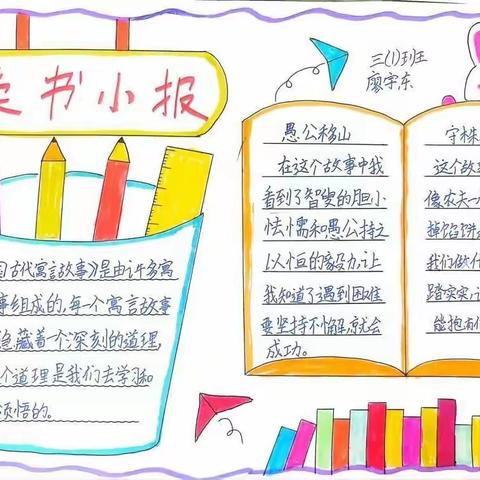 读书小报
三(1)班
廖宇东
国古代寓言故事》是由许多寓
事组成的,每个寓言故事
隐藏着一个深刻的道理,
个道理是我们去学习和
领悟的。
愚公移山
在这个故事中我
看到了智叟的胆小
怯懦和愚公持之
以恒的家毅力,让
我知道了遇到困难
要坚持不懈,就会
成功。
守株
这个故
像农夫一
掉馅饼
我们做什
踏实实,
能抱有侥